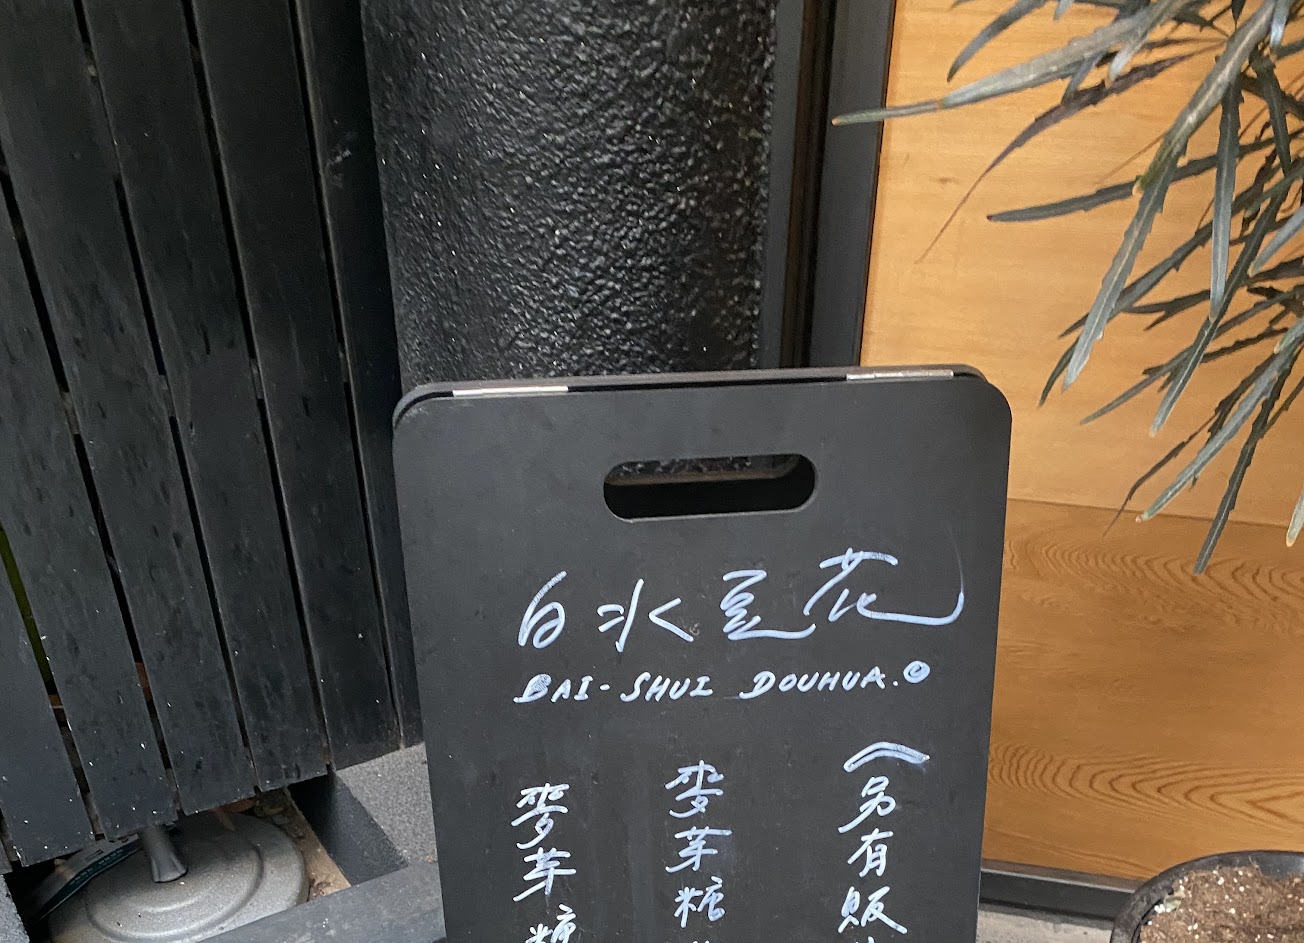 白水豆花
BAI-SHUI DOUHUA.
(另有販
麥芽糖
麥芽糖